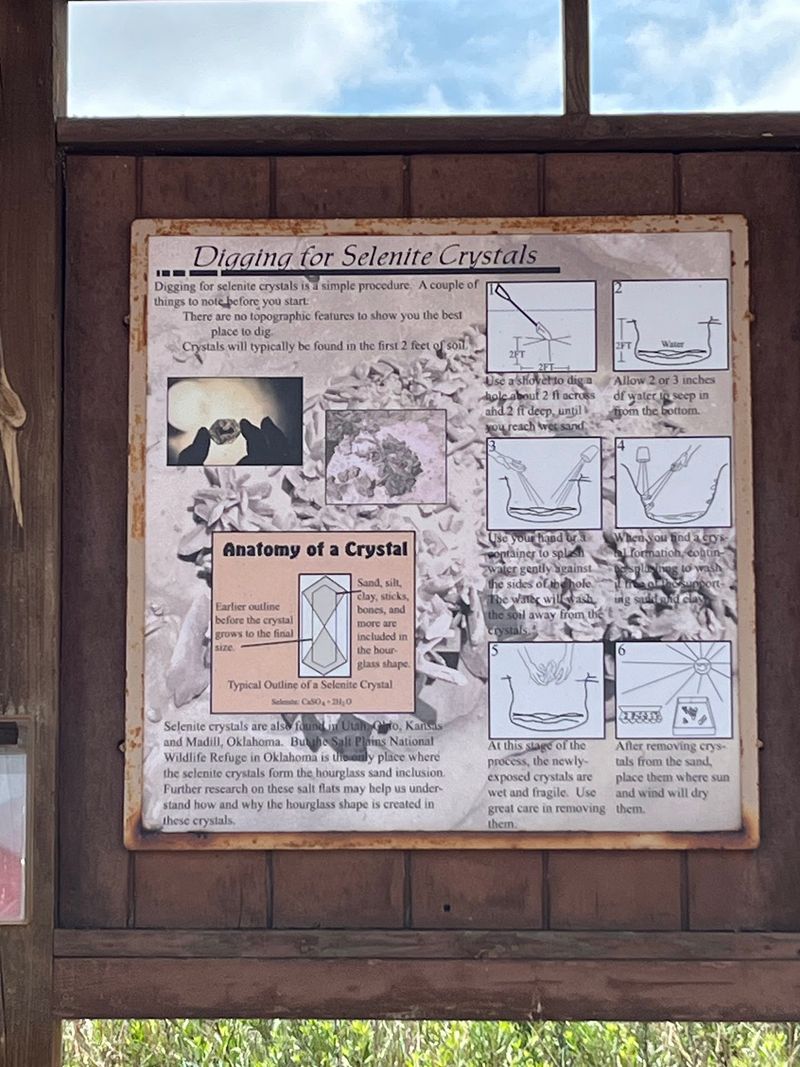 Digging for Selenite Crystals
Digging for selenite crystals is a simple procedure. A couple of
things to note before you start:
There are no topographic features to show you the best
place to dig.
Crystals will typically be found in the first 2 feet of soil.
1
2FT
2FT
Use a shovel to dig a
hole about 2 ft across
and 2 ft deep, until
you reach wet sand.
2
2FT
Water
Allow 2 or 3 inches
of water to seep in
from the bottom.
3
Use your hand or a
container to splash
water gently against
the sides of the hole.
The water will wash
the soil away from the
crystals.
4
When you find a crys-
tal formation, contin-
ue splashing to wash
it free of the support-
ing sand and clay.
Anatomy of a Crystal
Earlier outline
before the crystal
grows to the final
size.
Sand, silt,
clay, sticks,
bones, and
more are
included in
the hour-
glass shape.
Typical Outline of a Selenite Crystal
Selenite: CaSO4 • 2H2O
Selenite crystals are also found in Utah, Ohio, Kansas
and Madill, Oklahoma. But the Salt Plains National
Wildlife Refuge in Oklahoma is the only place where
the selenite crystals form the hourglass sand inclusion.
Further research on these salt flats may help us under-
stand how and why the hourglass shape is created in
these crystals.
5
At this stage of the
process, the newly-
exposed crystals are
wet and fragile. Use
great care in removing
them.
6
After removing crys-
tals from the sand,
place them where sun
and wind will dry
them.